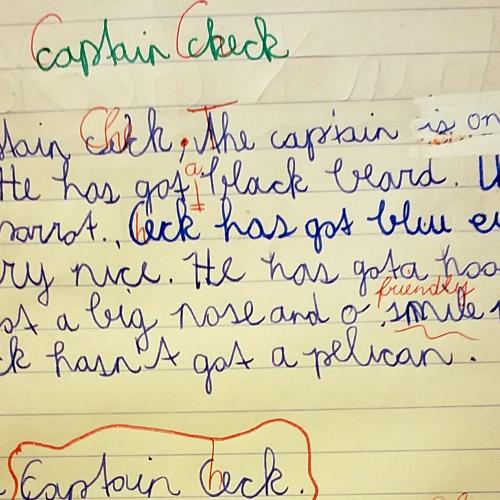 Captain Check
tain Chek. The captain is on
He has got a black beard.
parrot. Ceck has got blue
ry nice. He has got a hoo
ot a big nose and a friendly smile
ck hasn't got a pelican.
Captain Ceck.